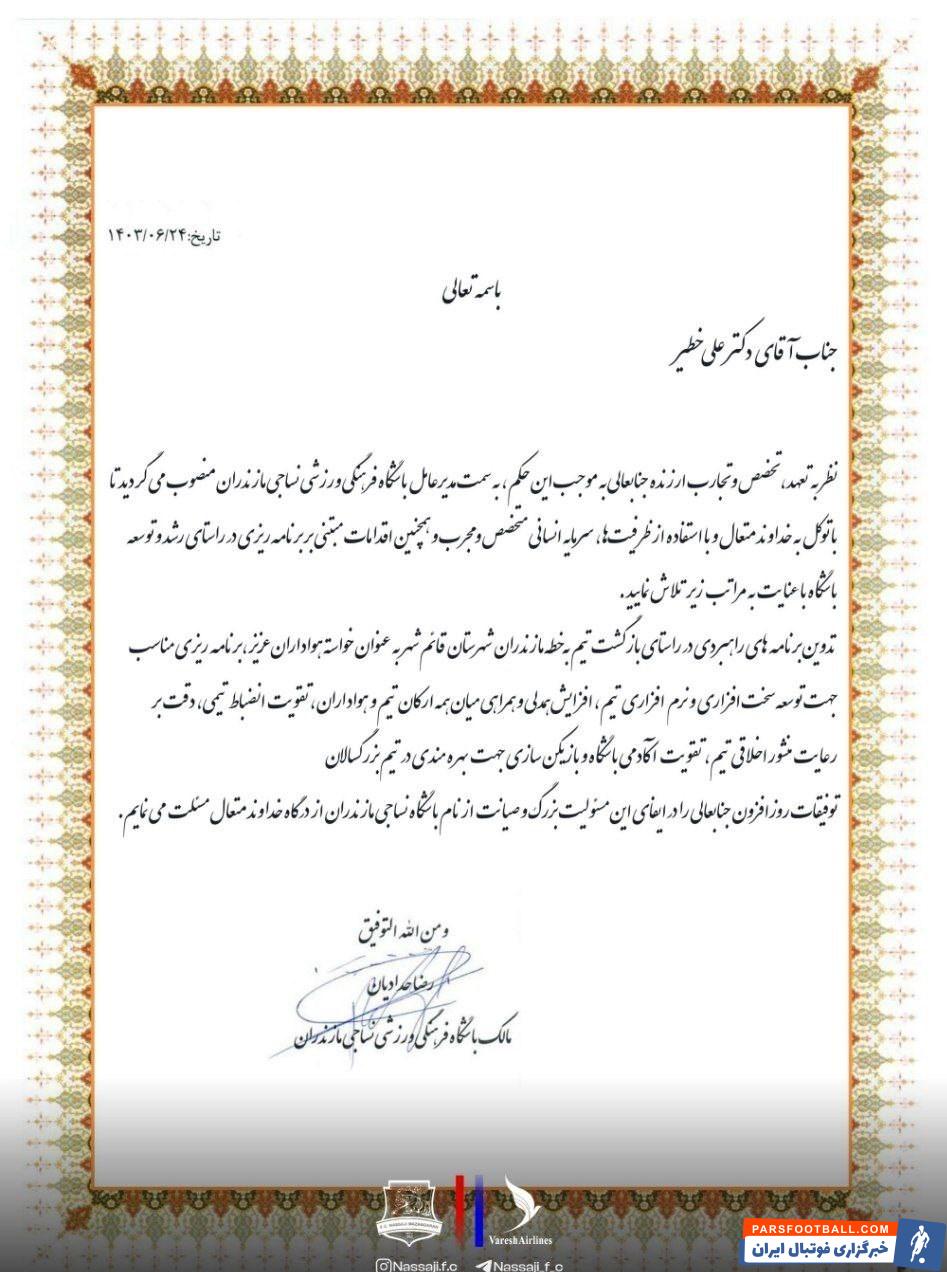 تاریخ:۱۴۰۳/۰۶/۲۴
باسمه تعالی
جناب آقای دکتر علی خطیر
نظر به تعهد، تخصص و تجارب ارزنده جنابعالی به موجب این حکم، به سمت مدیرعامل باشگاه فرهنگی ورزشی نساجی مازندران منصوب می گردید تا
با توکل به خداوند متعال و با استفاده از ظرفیت ها، سرمایه انسانی متخصص و مجرب و همچنین اقدامات مبتنی بر برنامه ریزی در راستای رشد و توسعه
باشگاه با عنایت به مراتب زیر تلاش نمایید.
تدوین برنامه های راهبردی در راستای بازگشت تیم به خطه مازندران شهرستان قائم شهر به عنوان خواسته هواداران عزیز، برنامه ریزی مناسب
جهت توسعه سخت افزاری و نرم افزاری تیم، افزایش همدلی و همراهی میان همه ارکان تیم و هواداران، تقویت انضباط تیمی، دقت بر
رعایت منشور اخلاقی تیم، تقویت آکادمی باشگاه و بازیکن سازی جهت بهره مندی در تیم بزرگسالان
توفیقات روز افزون جنابعالی را در ایفای این مسئولیت بزرگ و صیانت از نام باشگاه نساجی مازندران از درگاه خداوند متعال مسئلت می نمایم.
و من الله التوفیق
رضا حدادیان
مالک باشگاه فرهنگی ورزشی نساجی مازندران
F.C. NASSAJI MAZANDARAN
VareshAirlines
Nassaji.f.c
Nassaji_f_c
PARSFOOTBALL.COM
خبرگزاری فوتبال ایران